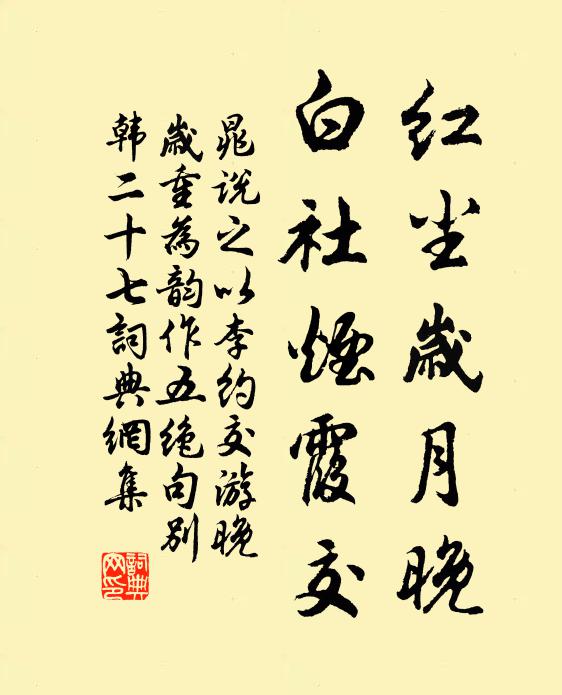 红尘岁月晚
白社煙霞交
晁说之以李约交游晚
歲重為韵作五绝句别
韩二十七詞典網集
詞典网印